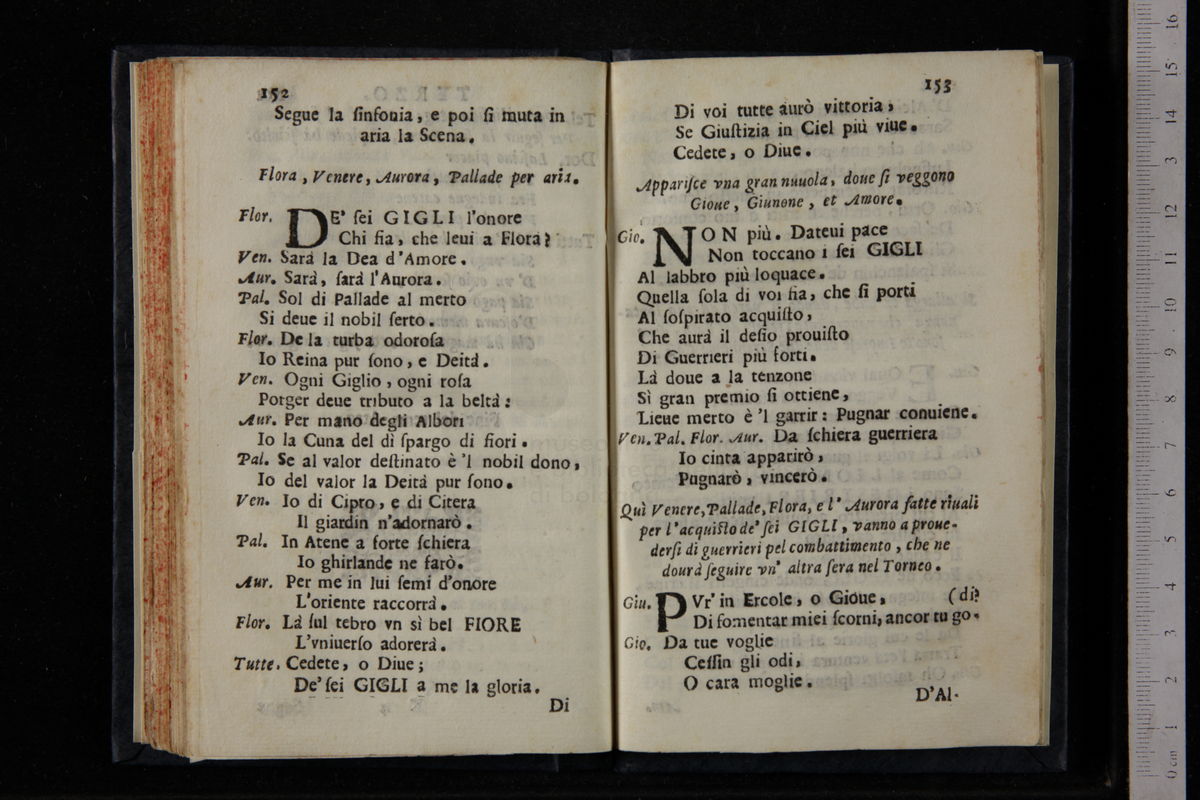 152
Segue la ſinfonia, e poi ſi muta in
aria la Scena.
Flora, Venere, Aurora, Pallade per aria.
Flor. DE' ſei GIGLI l'onore
Chi fia, che leui a Flora?
Ven. Sarà la Dea d'Amore.
Aur. Sarà, ſarà l'Aurora.
Pal. Sol di Pallade al merto
Si deue il nobil ſerto.
Flor. De la turba odoroſa
Io Reina pur ſono, e Deità.
Ven. Ogni Giglio, ogni roſa
Porger deue tributo a la beltà:
Aur. Per mano degli Albori
Io la Cuna del dì ſpargo di fiori.
Pal. Se al valor deſtinato è 'l nobil dono,
Io del valor la Deità pur ſono.
Ven. Io di Cipro, e di Citera
Il giardin n'adornarò.
Pal. In Atene a forte ſchiera
Io ghirlande ne farò.
Aur. Per me in lui ſemi d'onore
L'oriente raccorrà.
Flor. Là ſul tebro vn sì bel FIORE
L'vniuerſo adorerà.
Tutte. Cedete, o Diue;
De' ſei GIGLI a me la gloria.
Di
153
Di voi tutte aurò vittoria,
Se Giuſtizia in Ciel più viue.
Cedete, o Diue.
Appariſce vna gran nuuola, doue ſi veggono
Gioue, Giunone, et Amore.
Gio. NON più. Dateui pace
Non toccano i ſei GIGLI
Al labbro più loquace.
Quella ſola di voi fia, che ſi porti
Al ſoſpirato acquiſto,
Che aurà il deſio prouiſto
Di Guerrieri più forti.
Là doue a la tenzone
Sì gran premio ſi ottiene,
Lieue merto è 'l garrir: Pugnar conuiene.
Ven. Pal. Flor. Aur. Da ſchiera guerriera
Io cinta apparirò,
Pugnarò, vincerò.
Quì Venere, Pallade, Flora, e l' Aurora fatte riuali
per l'acquiſto de' ſei GIGLI, vanno a proue-
derſi di guerrieri pel combattimento, che ne
dourà ſeguire vn' altra ſera nel Torneo.
Giu. PVr' in Ercole, o Gioue, (di?
Di fomentar miei ſcorni, ancor tu go-
Gio. Da tue voglie
Ceſſin gli odi,
O cara moglie.
D'Al-